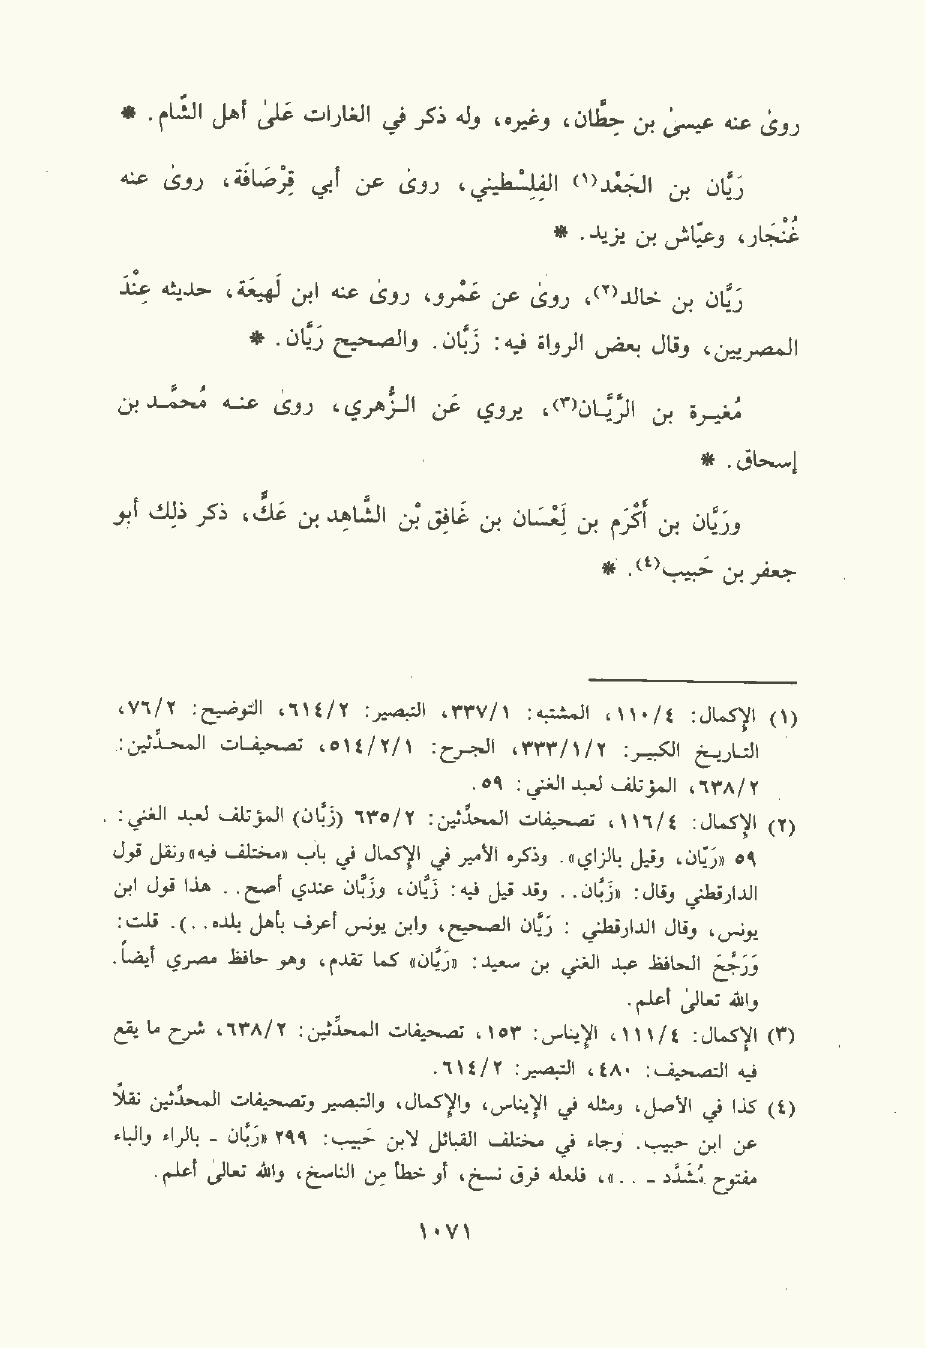 روىٰ عنه عيسىٰ بن حِطّان، وغيره، وله ذكر في الغارات عَلىٰ أهل الشَّام. *
رَيَّان بن الجَعْد(١) الفِلِسْطيني، روىٰ عن أبي قِرْصَافَة، روىٰ عنه
غُنْجَار، وعيّاش بن يزيد. *
رَيَّان بن خالد(٢)، روىٰ عن عَمْرو، روىٰ عنه ابن لَهِيعَة، حديثه عِنْدَ
المصريين، وقال بعض الرواة فيه: زَبَّان. والصحيح رَيَّان. *
مُغيرة بن الرَّيَّان(٣)، يروي عَن الزُّهري، روىٰ عنه مُحمَّد بن
إسحاق. *
ورَيَّان بن أَكْرَم بن لَعْسَان بن غَافِق بْن الشَّاهِد بن عَكّ، ذكر ذلِك أبو
جعفر بن حَبيب(٤). *
(١) الإكمال: ٤/١١٠، المشتبه: ١/٣٣٧، التبصير: ٢/٦١٤، التوضيح: ٢/٧٦،
التاريخ الكبير: ٢/١/٣٣٣، الجرح: ١/٢/٥١٤، تصحيفات المحدّثين:
٢/٦٣٨، المؤتلف لعبد الغني: ٥٩.
(٢) الإكمال: ٤/١١٦، تصحيفات المحدّثين: ٢/٦٣٥ (زَبّان) المؤتلف لعبد الغني:
٥٩ «رَيّان، وقيل بالزاي». وذكره الأمير في الإكمال في باب «مختلف فيه» ونقل قول
الدارقطني وقال: «زَبّان.. وقد قيل فيه: رَيَّان، وزَبّان عندي أصح.. هذا قول ابن
يونس، وقال الدارقطني : رَيَّان الصحيح، وابن يونس أعرف بأهل بلده..). قلت:
وَرَجَّحَ الحافظ عبد الغني بن سعيد: «رَيّان» كما تقدم، وهو حافظ مصري أيضاً.
والله تعالىٰ أعلم.
(٣) الإكمال: ٤/١١١، الإيناس: ١٥٣، تصحيفات المحدّثين: ٢/٦٣٨، شرح ما يقع
فيه التصحيف: ٤٨٠، التبصير: ٢/٦١٤.
(٤) كذا في الأصل، ومثله في الإيناس، والإكمال، والتبصير وتصحيفات المحدّثين نقلاً
عن ابن حبيب. وجاء في مختلف القبائل لابن حَبيب: ٢٩٩ «زَبّان - بالزاء والباء
مفتوح مُشَدّد - ..»، فلعله فرق نسخ، أو خطأ مِن الناسخ، والله تعالىٰ أعلم.
١٠٧١